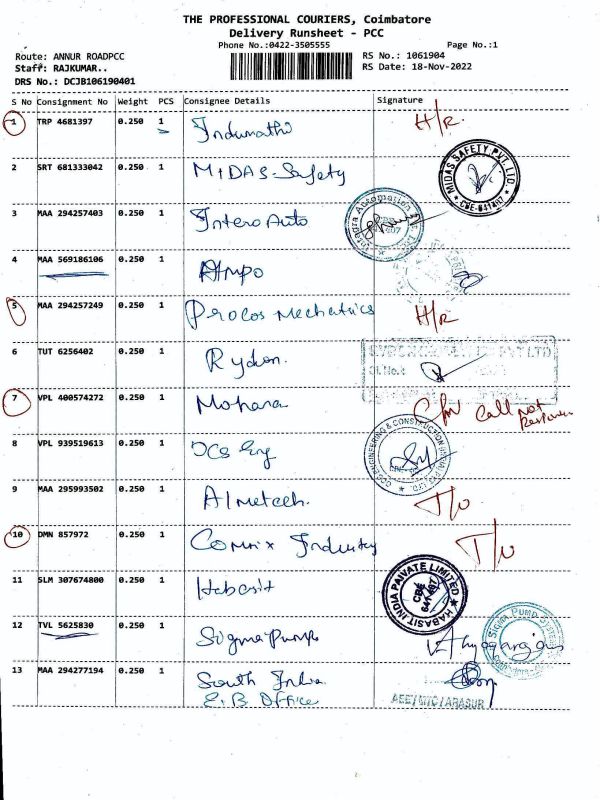 THE PROFESSIONAL COURIERS, Coimbatore
Delivery Runsheet - PCC
Phone No.:0422-3505555 Page No.:1
Route: ANNUR ROADPCC RS No.: 1061904
Staff: RAJKUMAR.. RS Date: 18-Nov-2022
DRS No.: DCJB106190401
S No Consignment No Weight PCS Consignee Details Signature
1 TRP 4681397 0.250 1 Indumathi H/R
2 SRT 681333042 0.250 1 MIDAS-Safety
MIDAS SAFETY PVT. LTD. * CBE-641407 *
3 MAA 294257403 0.250 1 Intero Auto
4 MAA 569186106 0.250 1
5 MAA 294257249 0.250 1 Procos Mechatrics H/R
6 TUT 6256402 0.250 1 Rydon.
PVT LTD
7 VPL 400574272 0.250 1 Mohana Call Not
8 VPL 939519613 0.250 1 OCS Eng
OCS ENGINEERING & CONSTRUCTION (INDIA) PVT. LTD.
9 MAA 295993502 0.250 1 Almetech. T/O
10 DMN 857972 0.250 1 Comrix Industry T/O
11 SLM 307674800 0.250 1 Habasit
HABASIT INDIA PRIVATE LIMITED CBE 641 407
12 TVL 5625830 0.250 1 Sigma Pumps
Sigma Pump Systems
13 MAA 294277194 0.250 1 South India
E.B Office
AEE/MTC/ARASUR